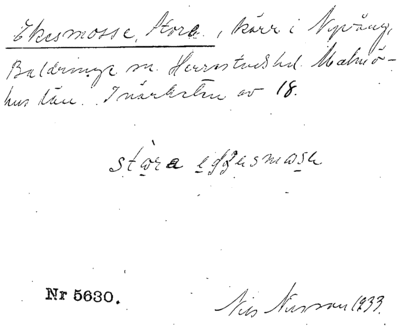 Ekesmosse, Stora, kärr i Nyvång,
Baldringe sn. Herrestads hd. Malmö-
hus län. I närheten av 18.
stora
Nr 5630.
Nils 1933.